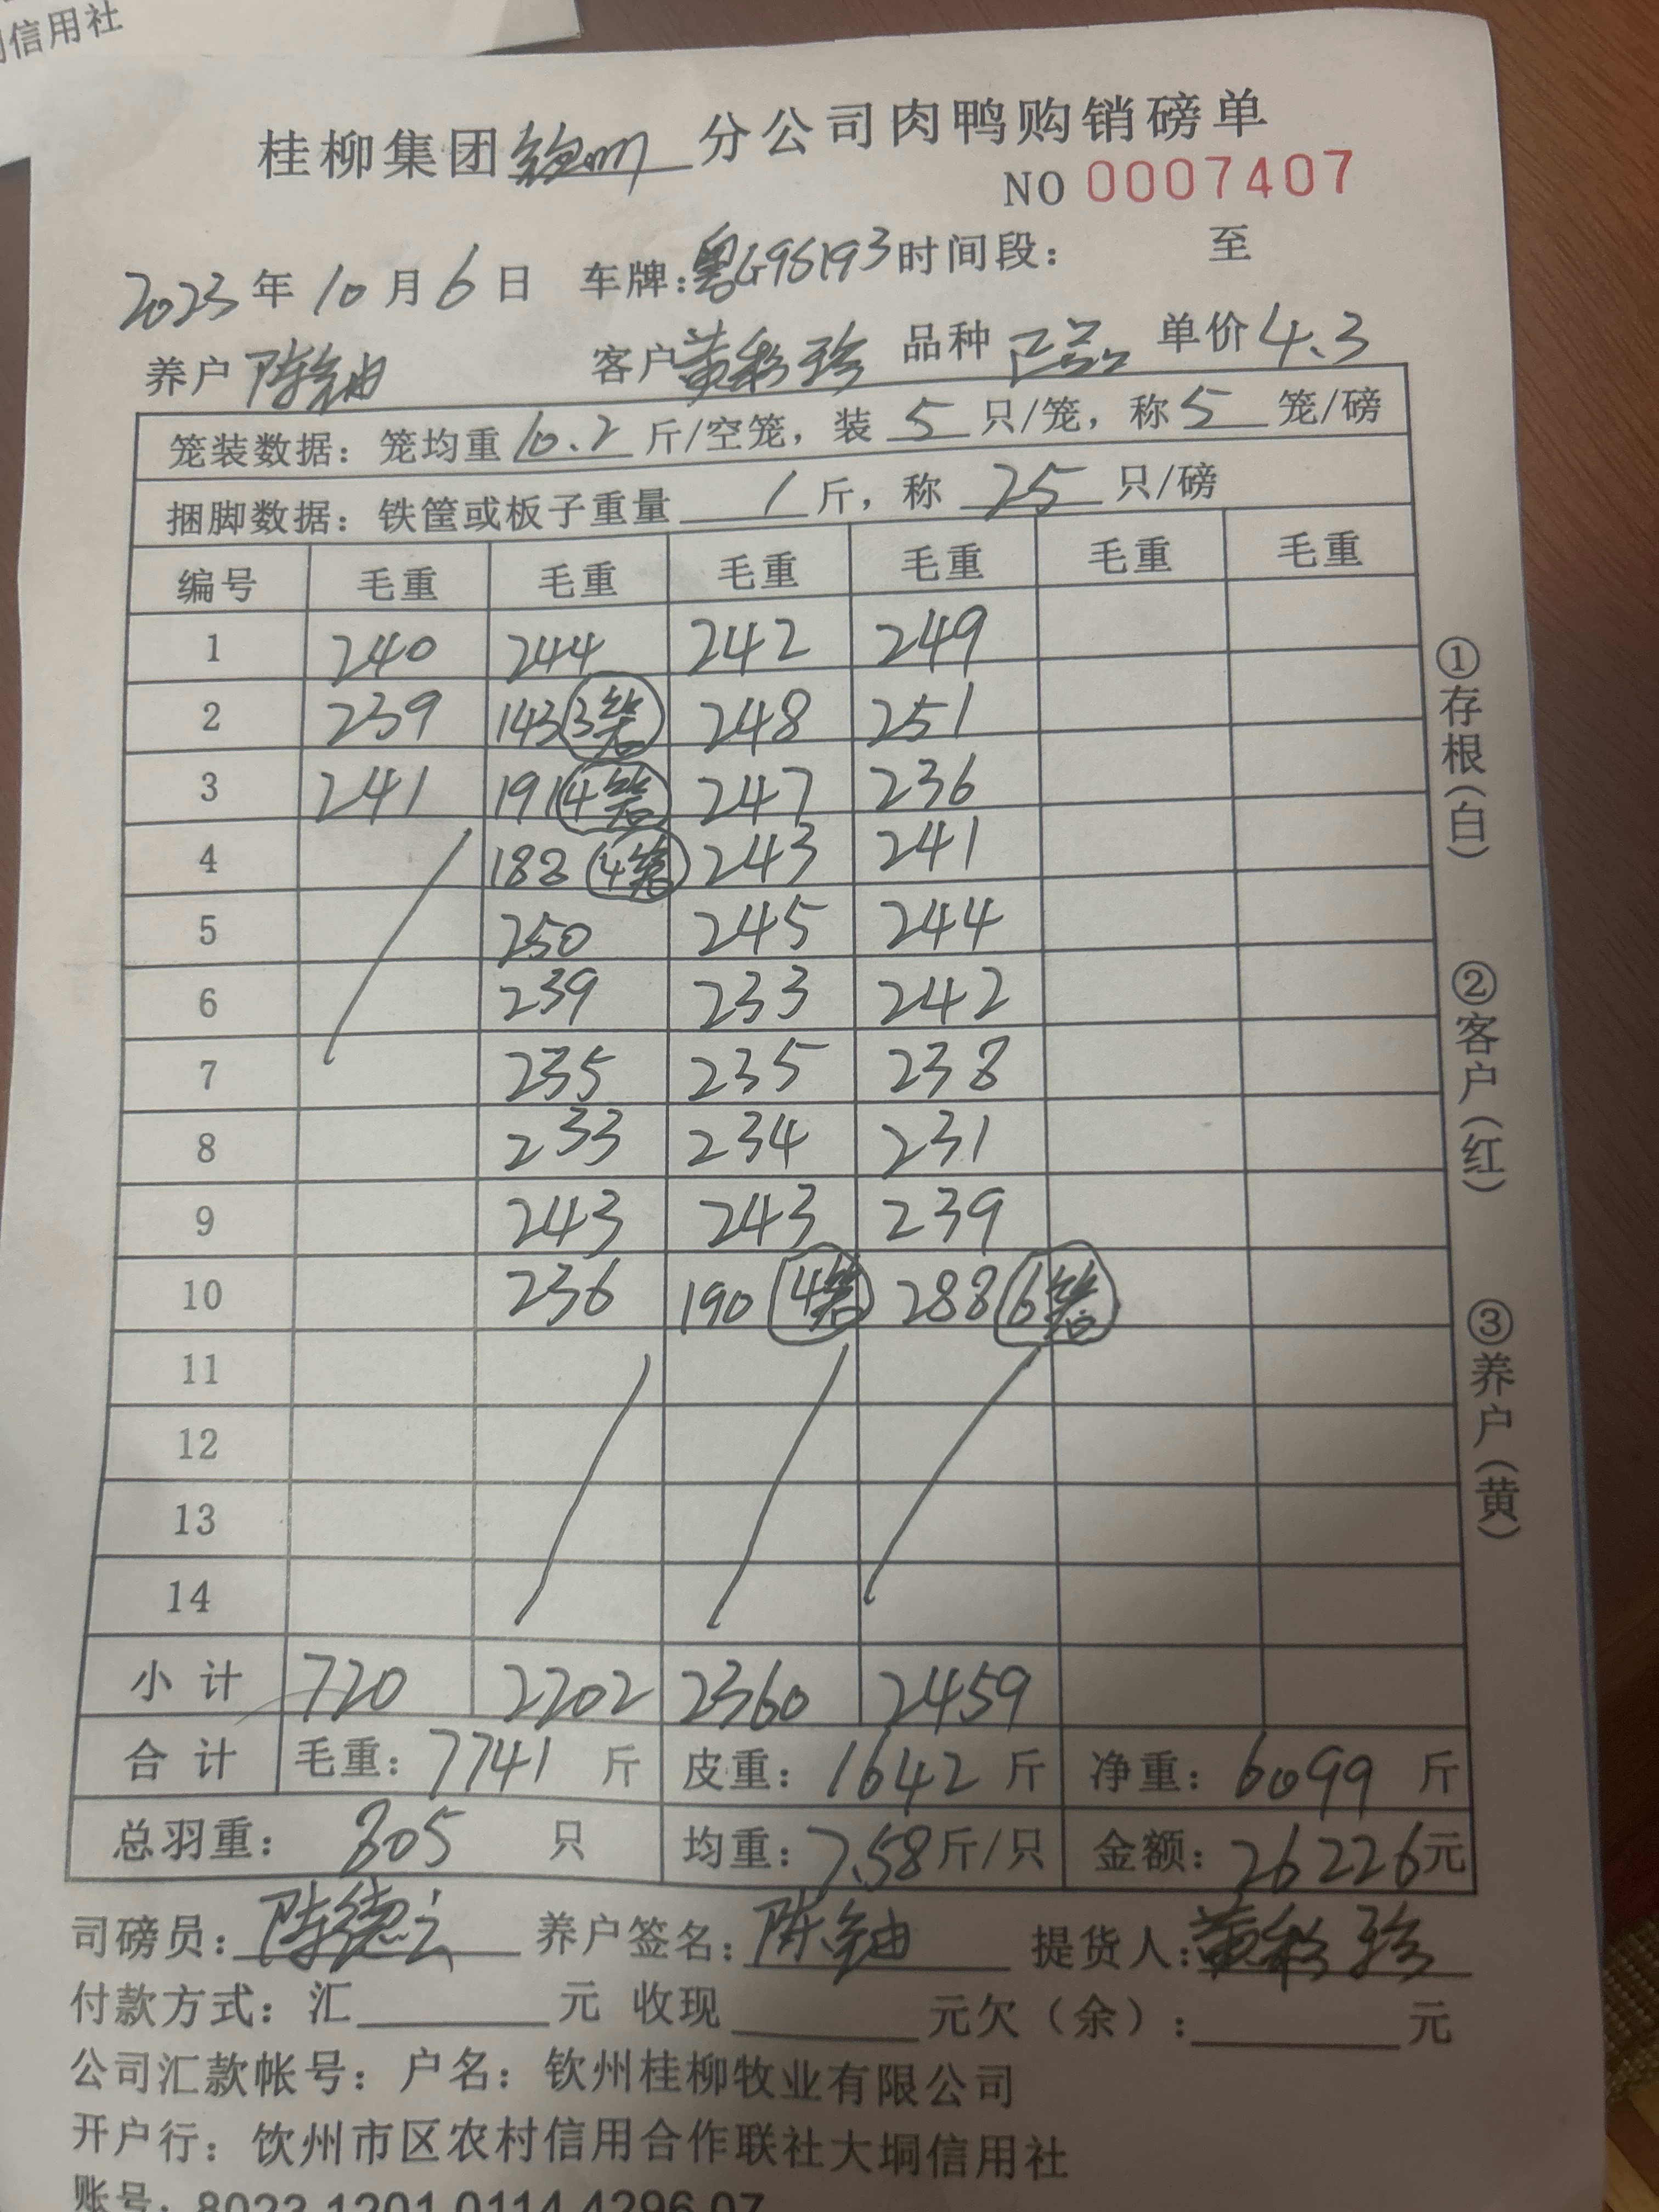 信用社
桂柳集团钦州分公司肉鸭购销磅单
NO 0007407
2023年10月6日 车牌:粤G96193时间段: 至
养户 陈铀 客户 黄彩珍 品种 正品 单价 4.3
笼装数据: 笼均重 10.2 斤/空笼, 装 5 只/笼, 称 5 笼/磅
捆脚数据: 铁筐或板子重量 / 斤, 称 25 只/磅
编号 毛重 毛重 毛重 毛重 毛重 毛重
1 240 244 242 249
2 239 143 3笼 248 251
3 241 191 4笼 247 236
4 188 4笼 243 241
5 250 245 244
6 239 233 242
7 235 235 238
8 233 234 231
9 243 243 239
10 236 190 4笼 288 6笼
11
12
13
14
小计 720 2202 2360 2459
合计 毛重: 7741 斤 皮重: 1642 斤 净重: 6099 斤
总羽重: 805 只 均重: 7.58 斤/只 金额: 26226 元
司磅员: 陈德云 养户签名: 陈铀 提货人: 黄彩珍
付款方式: 汇 元 收现 元欠(余): 元
公司汇款帐号: 户名: 钦州桂柳牧业有限公司
开户行: 钦州市区农村信用合作联社大垌信用社
账号: 8023 1201 0114 4296 07
①存根(白) ②客户(红) ③养户(黄)